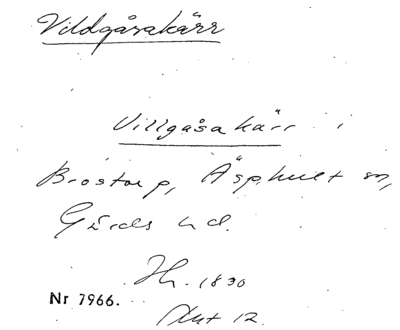 Vildgåsakärr
Villgåsakärr i
Brostorp, Äsphult sn,
Gärds hd.
Hh. 1830
Nr 7966.
Akt 12.